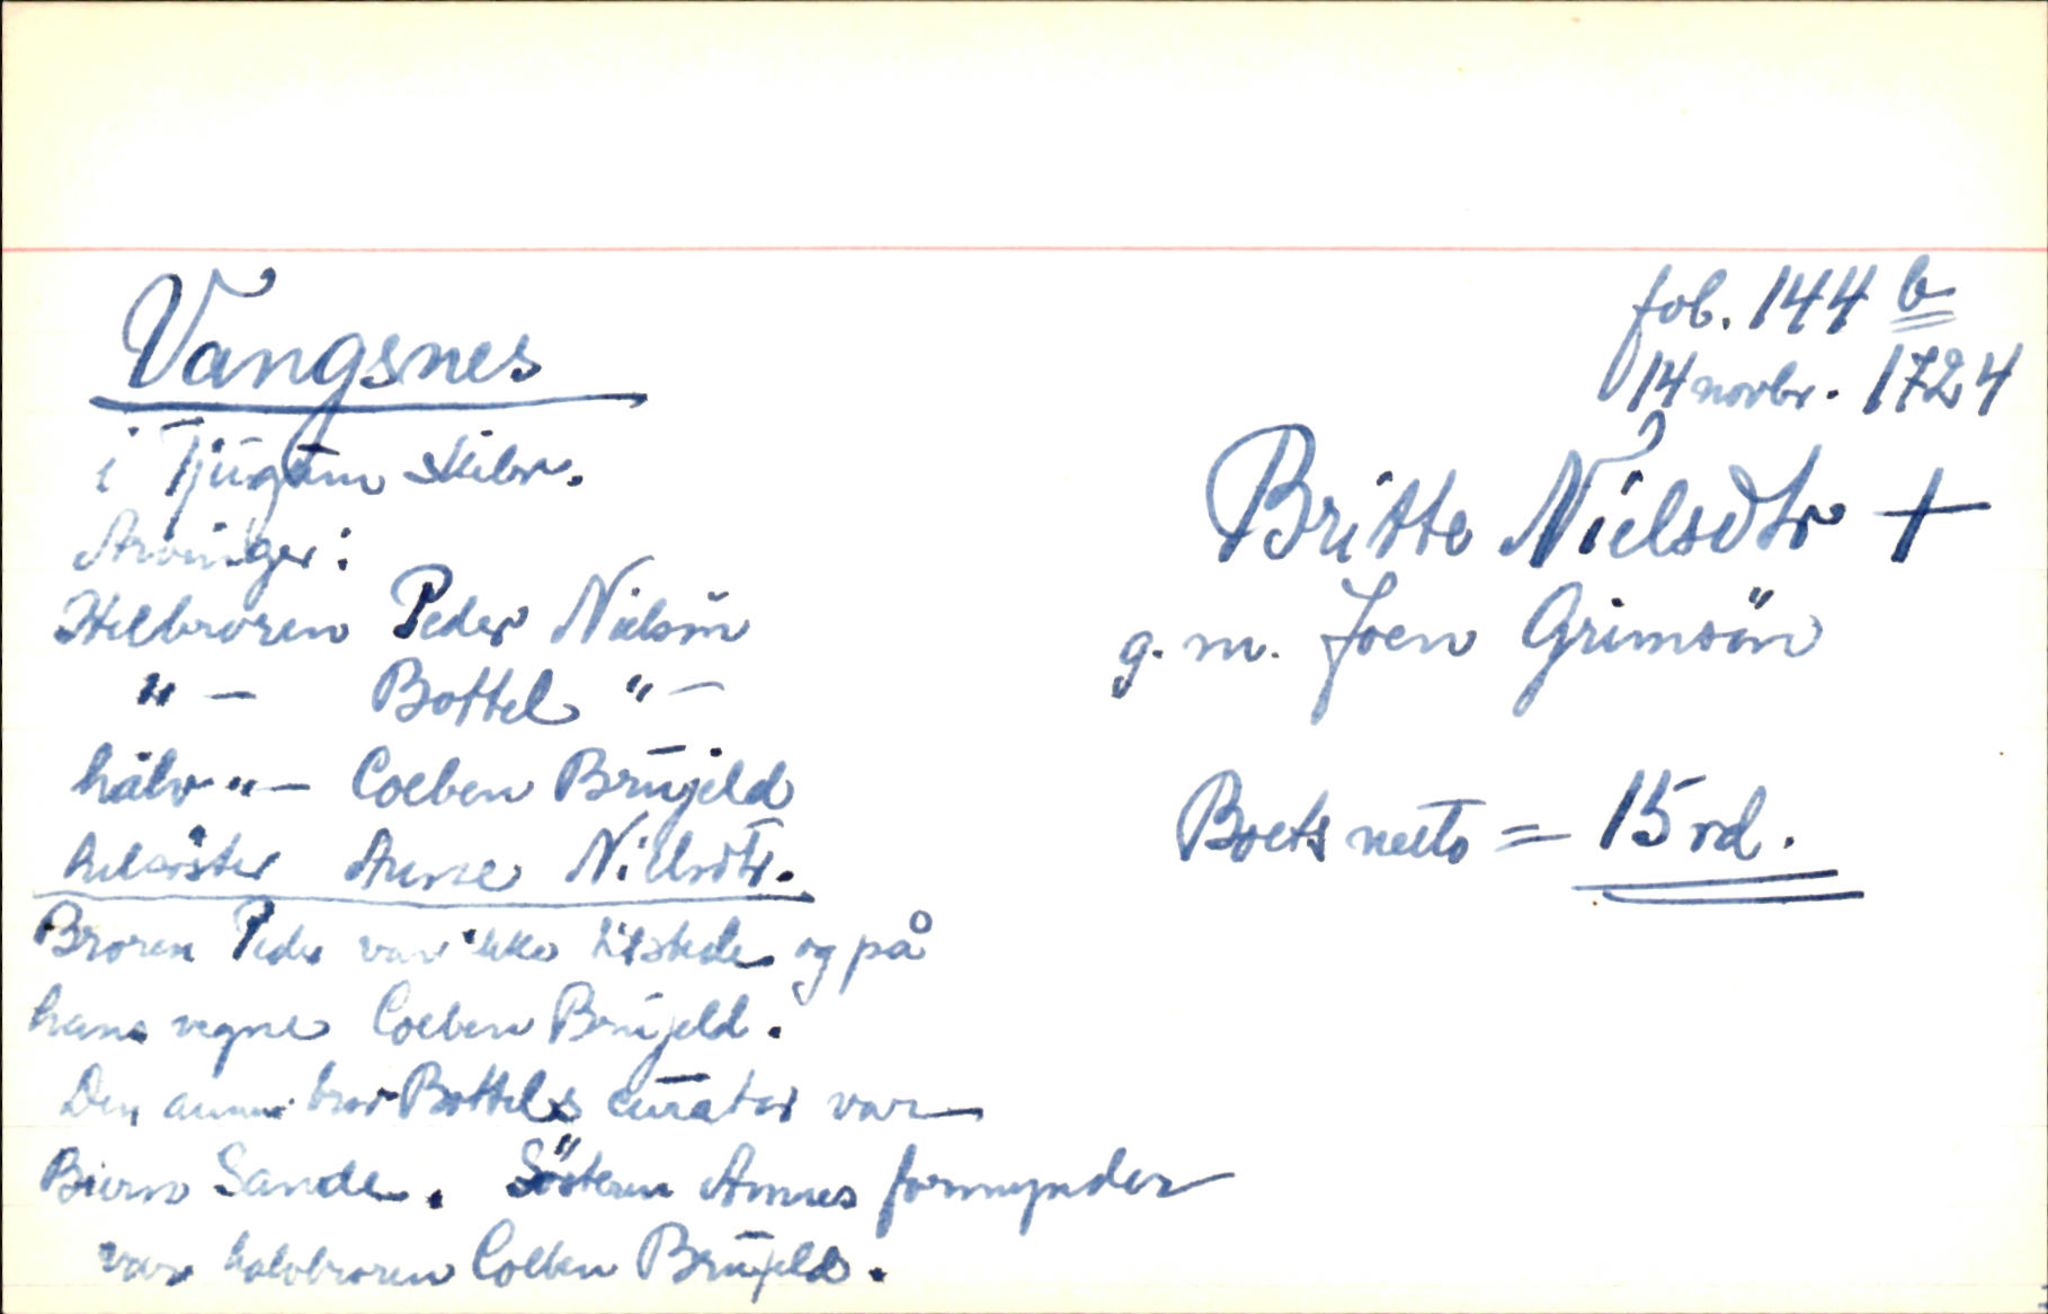 fol. 144 b
14 novbr. 1724
Vangsnes
i Tjugum skibr.
Arvinger:
Helbroren Peder Nielsön
" — Bottel " —
halv " — Colben Brujeld
helsöster Anne Nielsdtr.
Broren Peder var ikke tilstede og på
hans vegne Colben Brujeld.
Den annen bror Bottels curator var
Biørn Sande. Sösteren Annes formynder
var halvbroren Colben Brujeld.
Britte Nielsdtr +
g. m. Joen Grimsön
Boets netto = 15 rd.